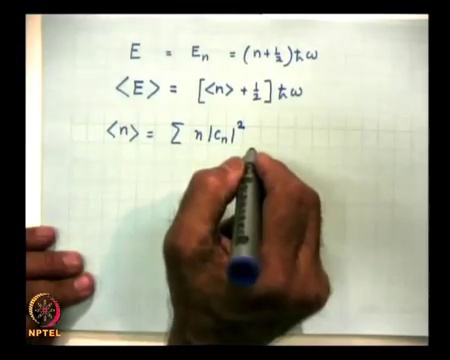 E = Eₙ = (n+½)ħω
<E> = [<n> + ½]ħω
<n> = Σ n|cₙ|²
NPTEL